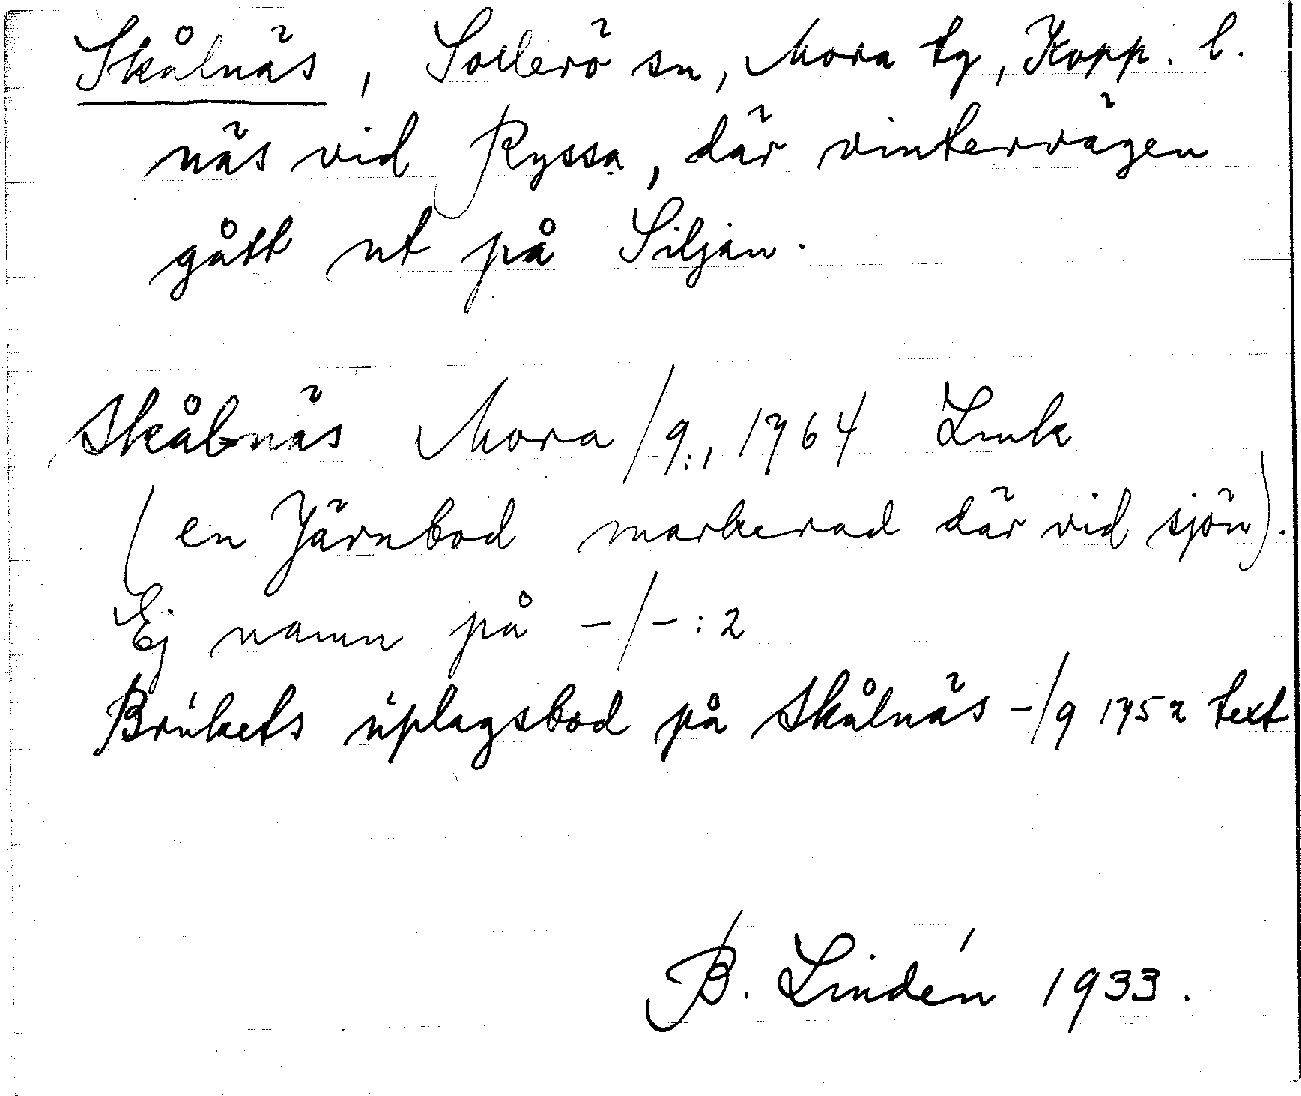 Skålnäs, Sollerö sn, Mora tg, Kopp. l.
näs vid Ryssa, där vintervägen
gått ut på Siljan.
Skålnäs Mora /9:1, 1764 Link
(en Järnbod markerad där vid sjön).
Ej namn på -/-:2
Brukets uplagsbod på Skålnäs -/9 1752 text
B. Lindén 1933.